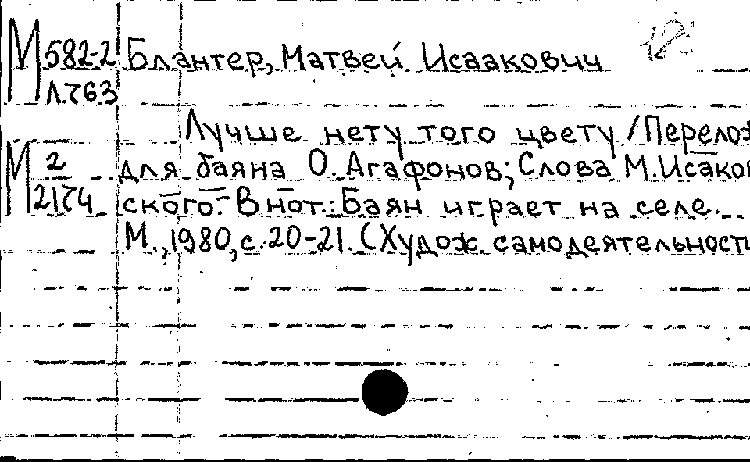 М 582-2 Блантер, Матвей Исаакович
Л.763
Лучше нету того цвету / Перелож
М 2 для баяна О. Агафонов; Слова М. Исаков
2174 ского. - В нот.: Баян играет на селе.
М., 1980, с. 20-21. (Худож. самодеятельност